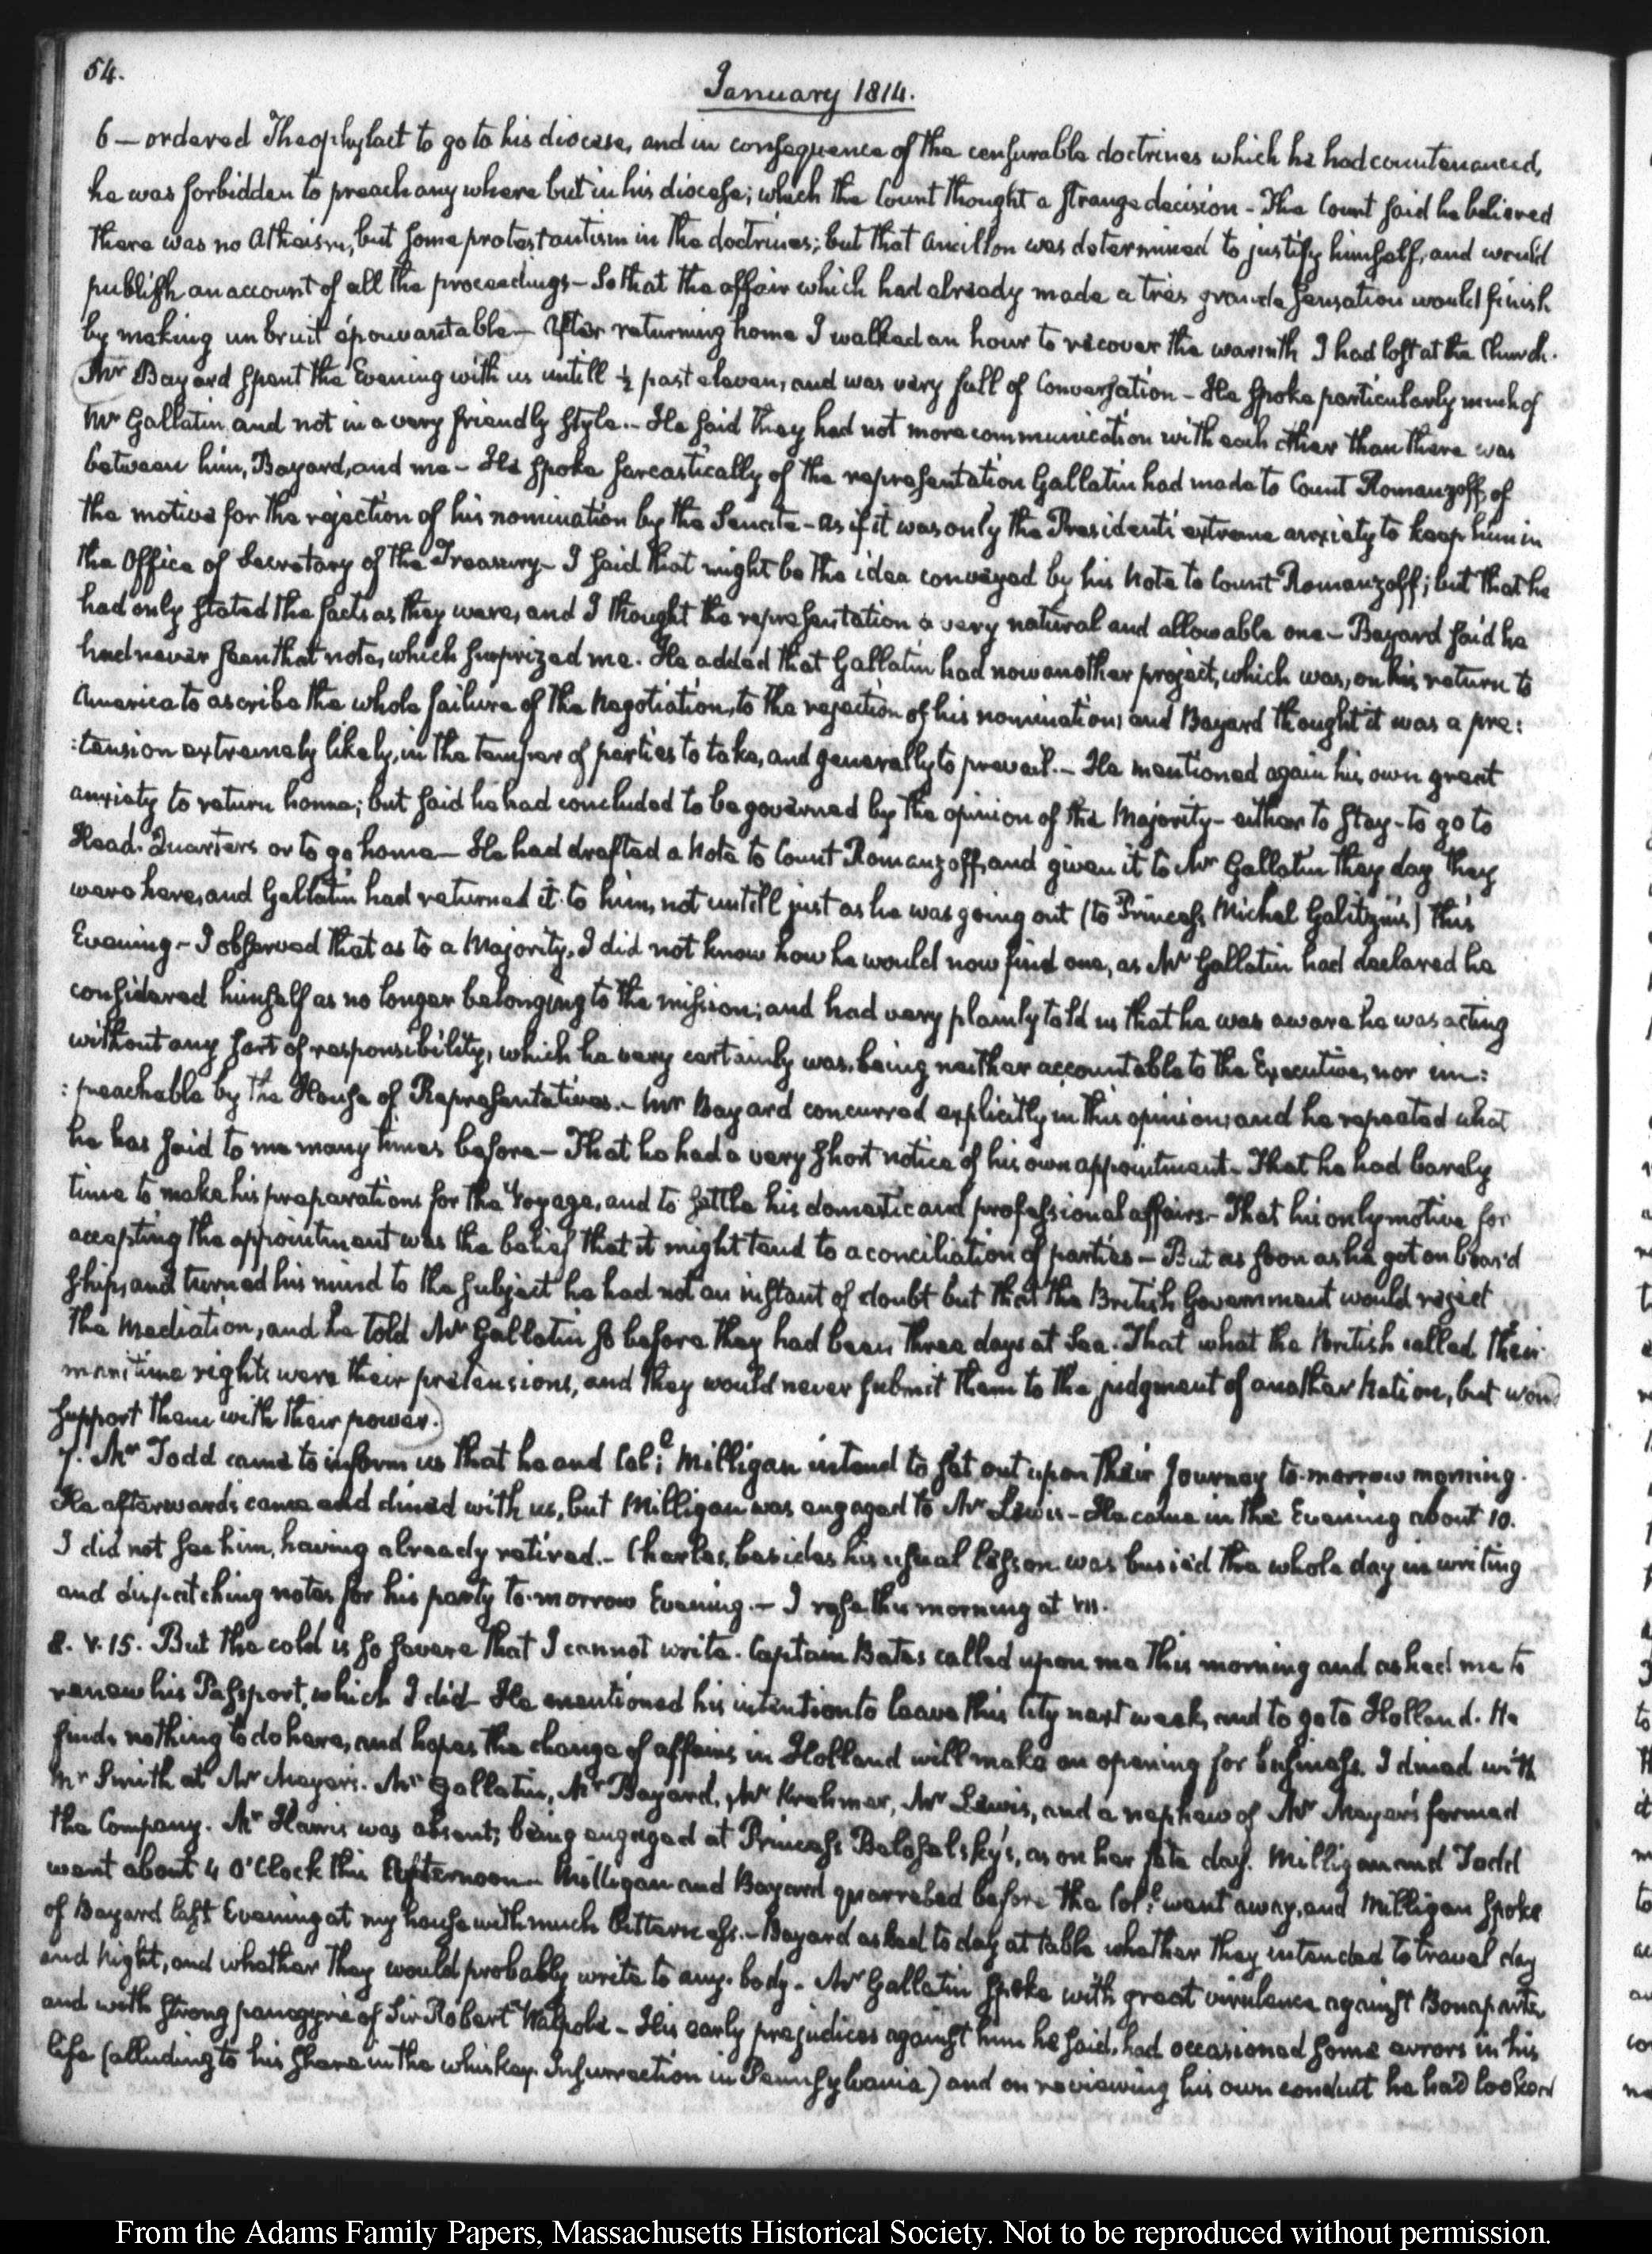 54.
January 1814.
6 — ordered Theophylact to go to his diocese, and in consequence of the censurable doctrines which he had countenanced,
he was forbidden to preach any where but in his diocese; which the Count thought a strange decision - The Count said he believed
there was no Atheism, but some protestantism in the doctrines; but that Ancillon was determined to justify himself, and would
publish an account of all the proceedings - So that the affair which had already made a très grande sensation would finish
by making un bruit épouvantable — After returning home I walked an hour to recover the warmth I had lost at the Church.
Mr Bayard spent the Evening with us untill ½ past eleven, and was very full of Conversation - He spoke particularly much of
Mr Gallatin, and not in a very friendly style. - He said they had not more communication with each other than there was
between him, Bayard, and me - He spoke sarcastically of the representation Gallatin had made to Count Romanzoff, of
the motive for the rejection of his nomination by the Senate - as if it was only the President's extreme anxiety to keep him in
the Office of Secretary of the Treasury - I said that might be the idea conveyed by his Note to Count Romanzoff; but that he
had only stated the facts as they were, and I thought the representation a very natural and allowable one - Bayard said he
had never seen that note, which surprized me. He added that Gallatin had now another project, which was, on his return to
America to ascribe the whole failure of the Negotiation, to the rejection of his nomination; and Bayard thought it was a pre:
:tension extremely likely, in the temper of parties to take, and generally to prevail. - He mentioned again his own great
anxiety to return home; but said he had concluded to be governed by the opinion of the Majority - either to stay - to go to
Head-Quarters or to go home — He had drafted a Note to Count Romanzoff, and given it to Mr Gallatin they day they
were here, and Gallatin had returned it to him, not untill just as he was going out (to Princess Michel Galitzin's) this
Evening - I observed that as to a Majority, I did not know how he would now find one, as Mr Gallatin had declared he
considered himself as no longer belonging to the mission; and had very plainly told us that he was aware he was acting
without any sort of responsibility, which he very certainly was, being neither accountable to the Executive, nor im:
:peachable by the House of Representatives. - Mr Bayard concurred explicitly in this opinion; and he repeated what
he has said to me many times before - That he had a very short notice of his own appointment - That he had barely
time to make his preparations for the Voyage, and to settle his domestic and professional affairs - That his only motive for
accepting the appointment was the belief that it might tend to a conciliation of parties - But as soon as he got on board
ship, and turned his mind to the subject he had not an instant of doubt but that the British Government would reject
the Mediation, and he told Mr Gallatin so before they had been three days at Sea. That what the British called their
maritime rights were their pretensions, and they would never submit them to the judgment of another Nation, but would
support them with their power.
7. Mr Todd came to inform us that he and Coll: Milligan intend to set out upon their Journey to-morrow morning.
He afterwards came and dined with us, but Milligan was engaged to Mr Lewis - He came in the Evening about 10.
I did not see him, having already retired. - Charles, besides his usual lesson was busied the whole day in writing
and dispatching notes for his party to-morrow Evening. - I rose this morning at VII.
8. V.15. But the cold is so severe that I cannot write. Captain Bates called upon me this morning and asked me to
renew his Passport, which I did - He mentioned his intention to leave this City next week, and to go to Holland. He
finds nothing to do here, and hopes the change of affairs in Holland will make an opening for business. I dined with
Mr Smith at Mr Meyer's. Mr Gallatin, Mr Bayard, Mr Krehmer, Mr Lewis, and a nephew of Mr Meyer's formed
the Company. Mr Harris was absent; being engaged at Princess Beloselsky's, as on her fête day. Milligan and Todd
went about 4 O'Clock this Afternoon - Milligan and Bayard quarrelled before the Coll: went away, and Milligan spoke
of Bayard last Evening at my house with much bitterness. - Bayard asked to day at table whether they intended to travel day
and Night, and whether they would probably write to any body. Mr Gallatin spoke with great virulence against Bonaparte,
and with strong panegyric of Sir Robert Walpole - His early prejudices against him he said, had occasioned some errors in his
life (alluding to his share in the whiskey Insurrection in Pennsylvania) and on reviewing his own conduct he had looked
From the Adams Family Papers, Massachusetts Historical Society. Not to be reproduced without permission.